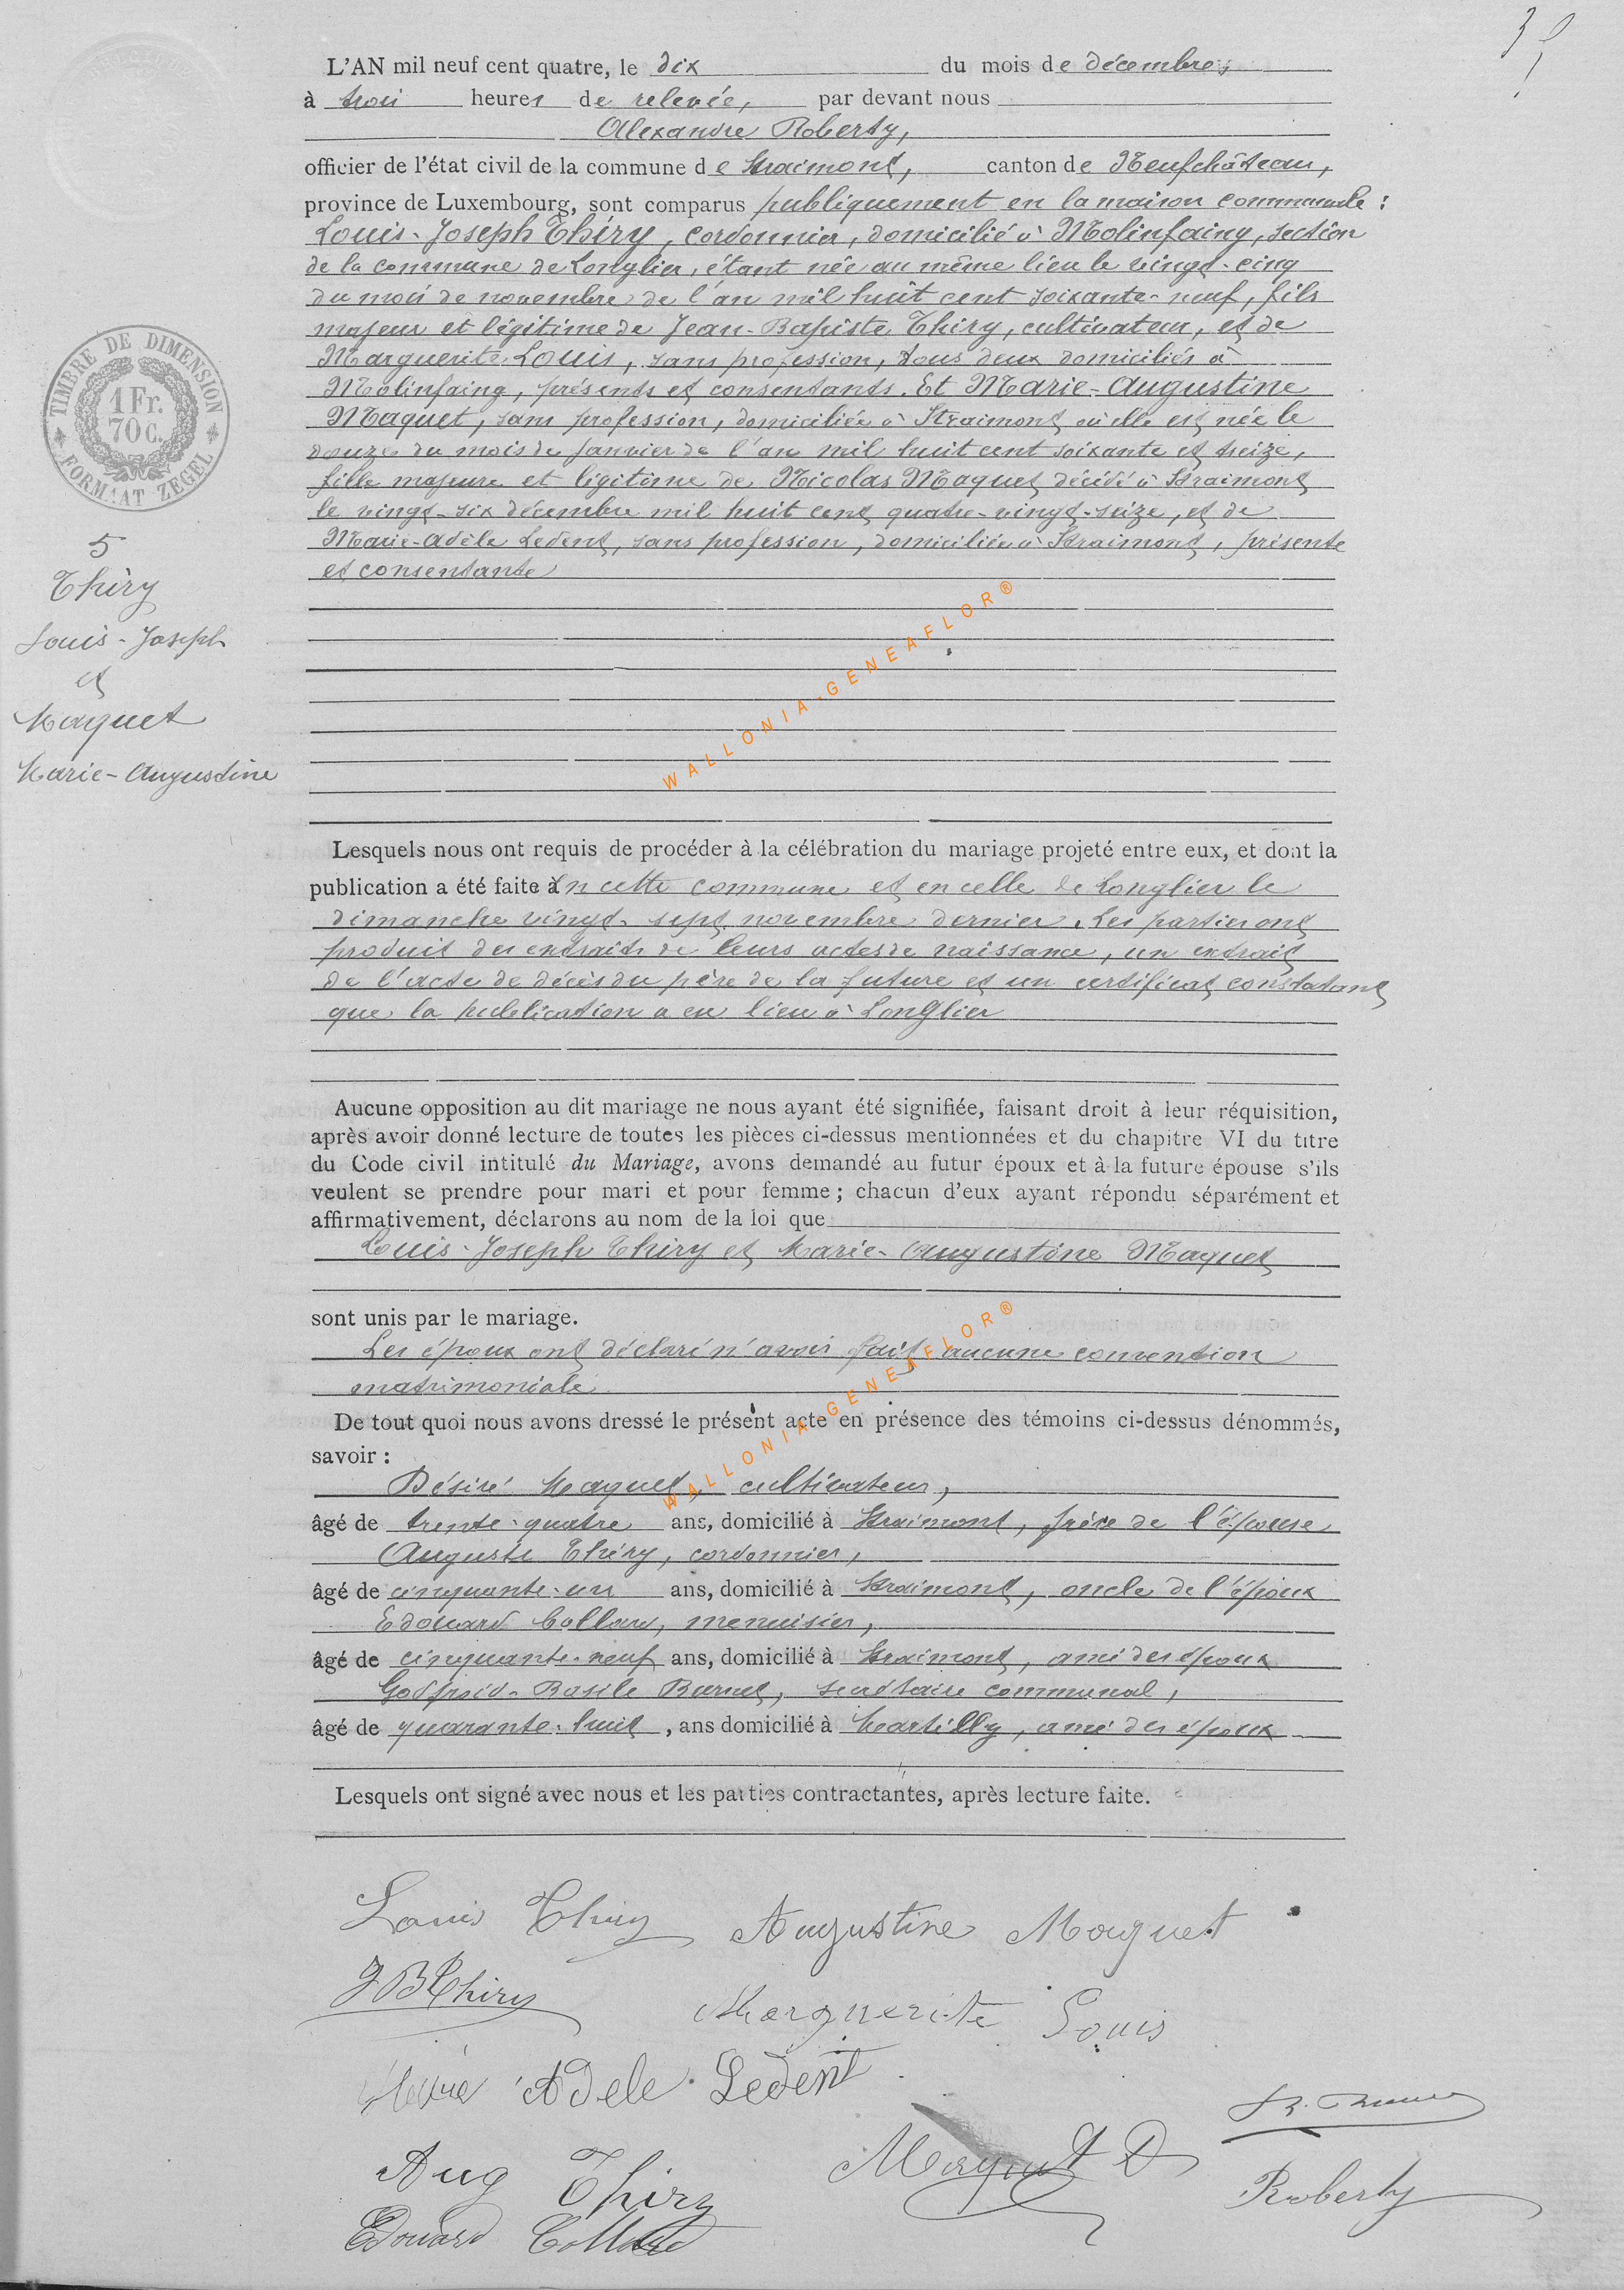 L'AN mil neuf cent quatre, le dix du mois de décembre,
à trois heures de relevée, par devant nous
Alexandre Roberty,
officier de l'état civil de la commune de Straimont, canton de Neufchâteau,
province de Luxembourg, sont comparus publiquement en la maison communale :
Louis-Joseph Thiry, cordonnier, domicilié à Molinfaing, section
de la commune de Longlier, étant née au même lieu le vingt-cinq
du mois de novembre de l'an mil huit cent soixante-neuf, fils
majeur et légitime de Jean-Bapiste Thiry, cultivateur, et de
Marguerite Louis, sans profession, tous deux domiciliés à
Molinfaing, présents et consentants. Et Marie-Augustine
Maquet, sans profession, domiciliée à Straimont où elle est née le
douze du mois de janvier de l'an mil huit cent soixante et treize,
fille majeure et légitime de Nicolas Maquet décédé à Straimont
le vingt-six décembre mil huit cent quatre-vingt-seize, et de
Marie-Adèle Ledent, sans profession, domiciliée à Straimont, présente
et consentante
TIMBRE DE DIMENSION
1 Fr.
70 C.
FORMAAT ZEGEL
5
Thiry
Louis-Joseph
et
Maquet
Marie-Augustine
WALLONIA-GENEAFLOR®
Lesquels nous ont requis de procéder à la célébration du mariage projeté entre eux, et dont la
publication a été faite en cette commune et en celle de Longlier le
dimanche vingt-sept novembre dernier. Les parties ont
produit des extraits de leurs actes de naissance, un extrait
de l'acte de décès du père de la future et un certificat constatant
que la publication a eu lieu à Longlier
Aucune opposition au dit mariage ne nous ayant été signifiée, faisant droit à leur réquisition,
après avoir donné lecture de toutes les pièces ci-dessus mentionnées et du chapitre VI du titre
du Code civil intitulé du Mariage, avons demandé au futur époux et à la future épouse s'ils
veulent se prendre pour mari et pour femme ; chacun d'eux ayant répondu séparément et
affirmativement, déclarons au nom de la loi que
Louis-Joseph Thiry et Marie-Augustine Maquet
sont unis par le mariage.
Les époux ont déclaré n'avoir fait aucune convention
matrimoniale
WALLONIA-GENEAFLOR®
De tout quoi nous avons dressé le présent acte en présence des témoins ci-dessus dénommés,
savoir :
Désiré Maquet, cultivateur,
âgé de trente-quatre ans, domicilié à Straimont, frère de l'épouse
Auguste Thiry, cordonnier,
âgé de cinquante-un ans, domicilié à Straimont, oncle de l'époux
Edouard Collard, menuisier,
âgé de cinquante-neuf ans, domicilié à Straimont, ami des époux
Godfroid-Basile Burnet, secrétaire communal,
âgé de quarante-huit, ans domicilié à Martilly, ami des époux
Lesquels ont signé avec nous et les parties contractantes, après lecture faite.
Louis Thiry Augustine Maquet
JBThiry Marguerite Louis
Marie Adele Ledent
Aug Thiry Maquet D
Roberty
Edouard Collard